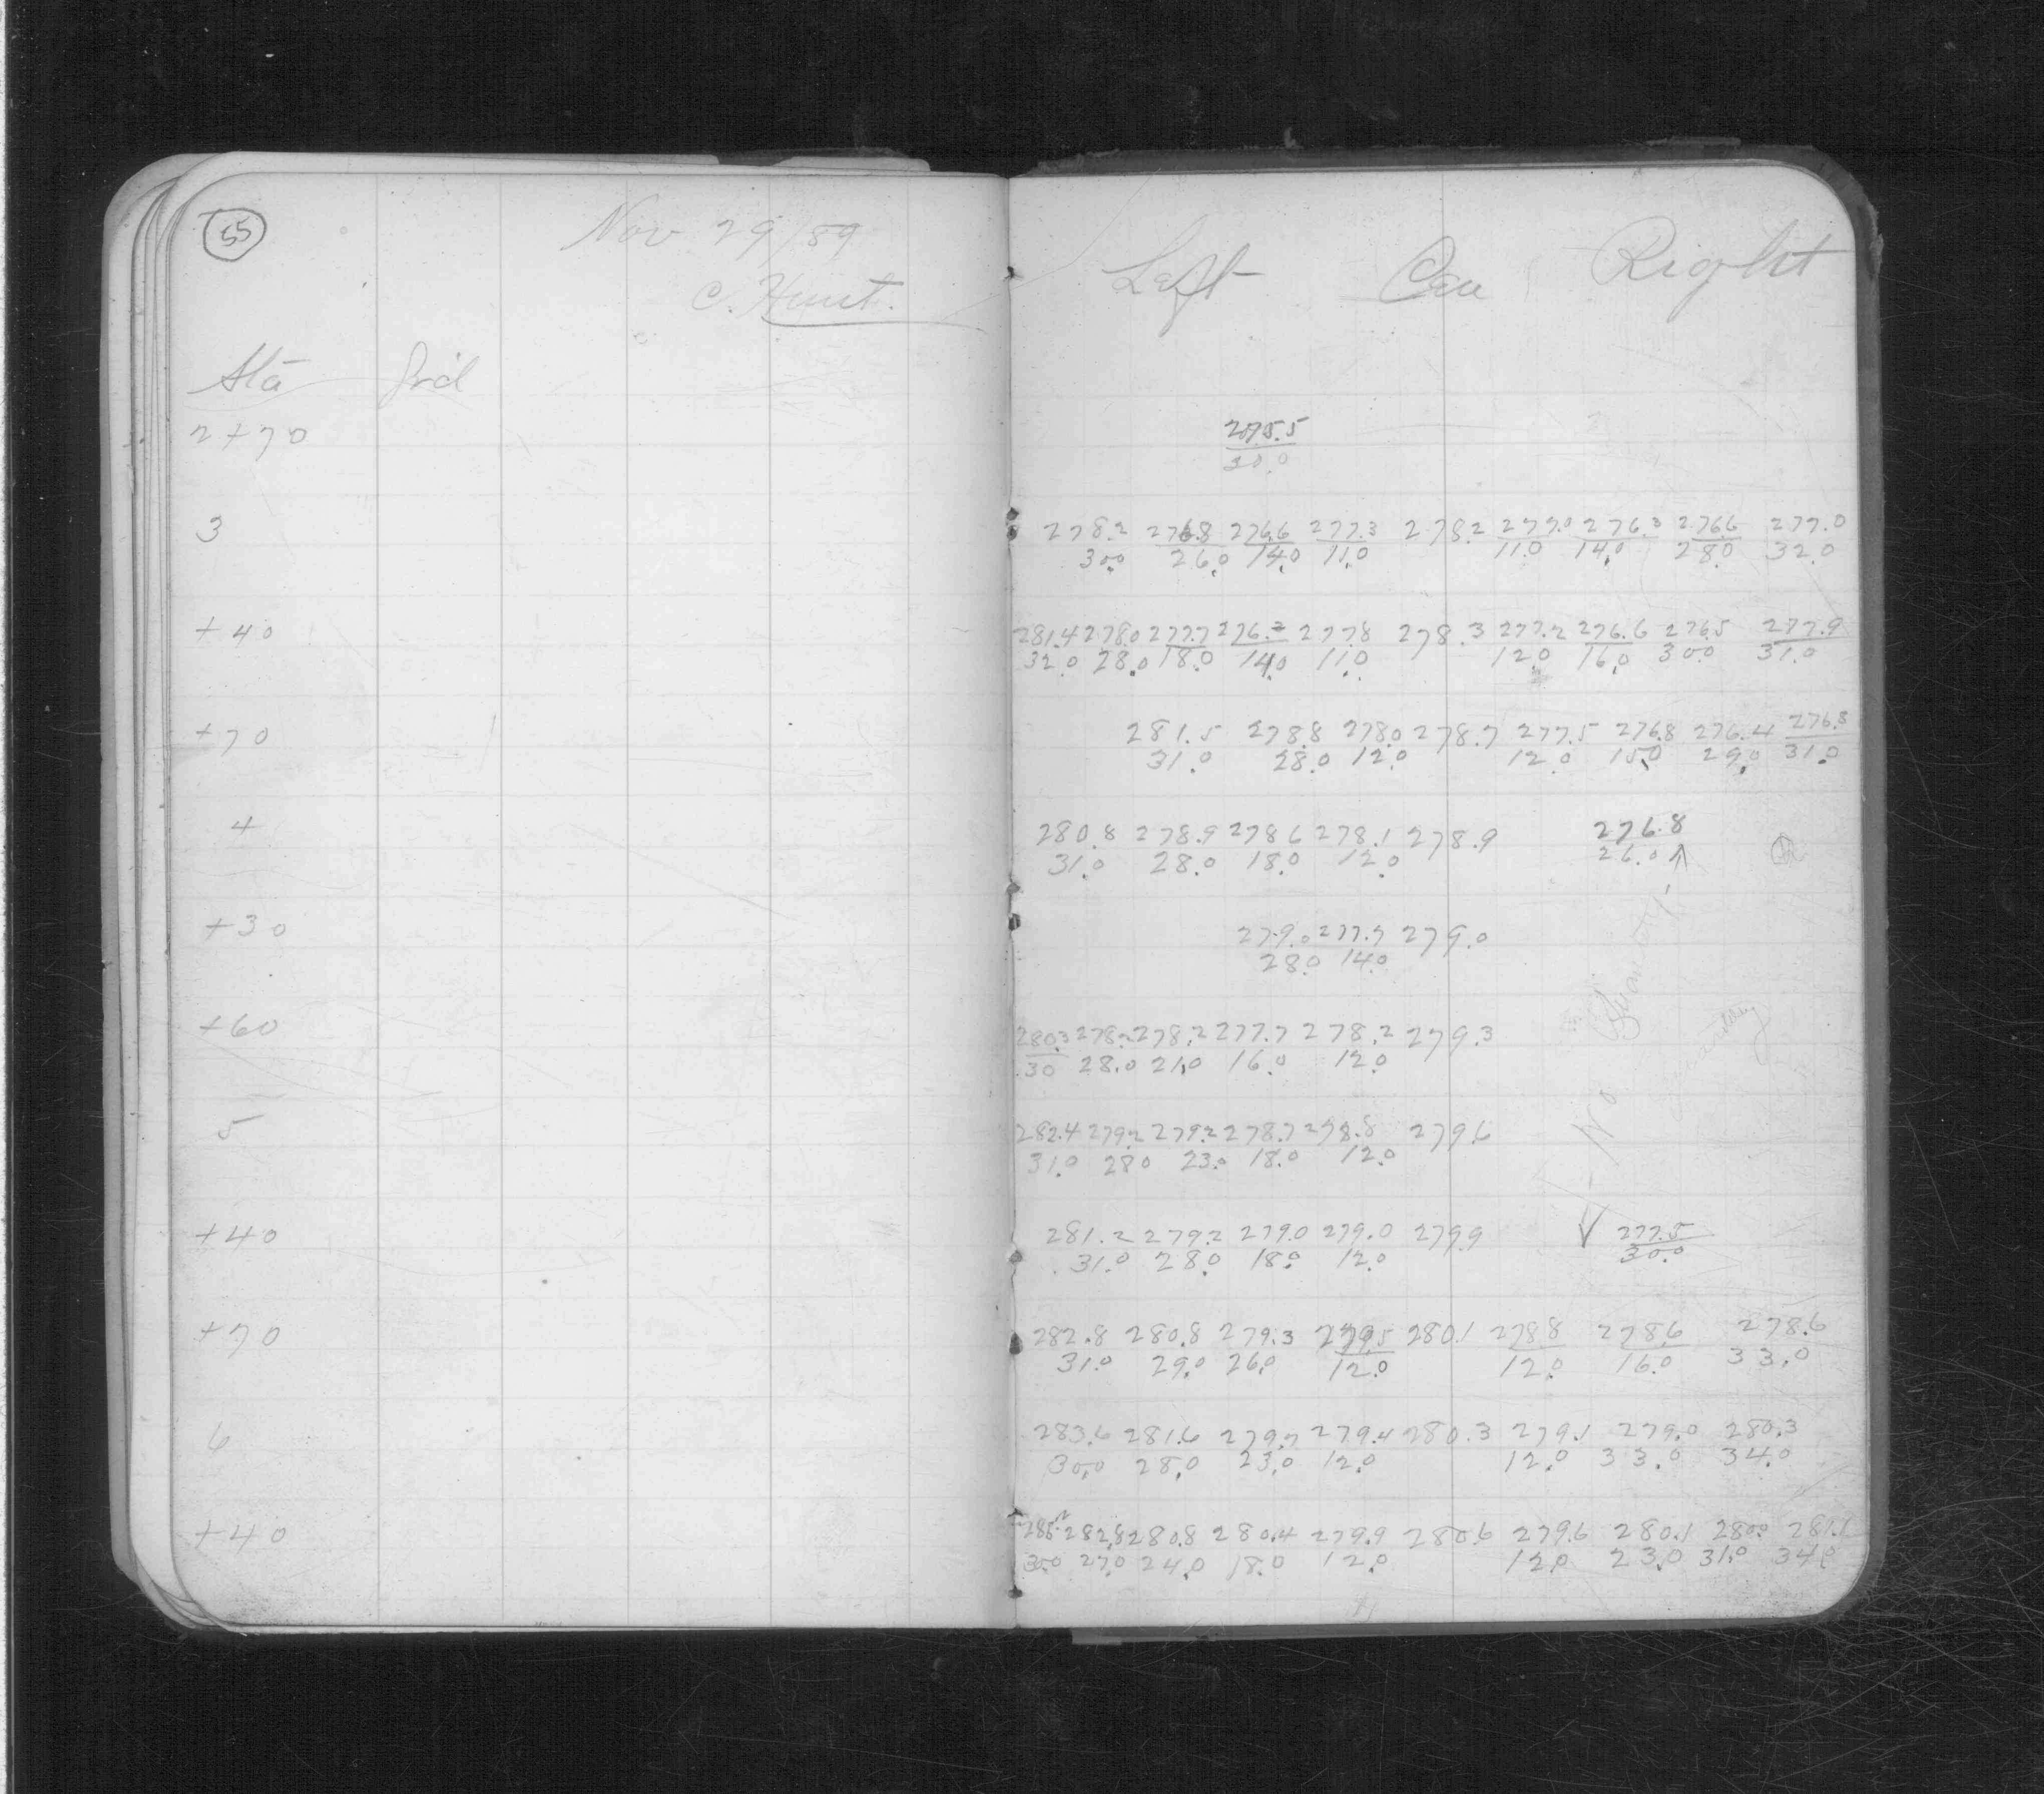 55
Nov 29/89
C. Hunt.
Left Cen Right
Sta Grd
2+70 275.5
30.0
3 278.2 276.8 276.6 277.3 278.2 277.0 276.3 276.6 277.0
30.0 26.0 14.0 11.0 11.0 14.0 28.0 32.0
+40 281.4 278.0 277.7 276.2 277.8 278.3 277.2 276.6 276.5 277.9
32.0 28.0 18.0 14.0 11.0 12.0 16.0 30.0 31.0
+70 281.5 278.8 278.0 278.7 277.5 276.8 276.4 276.8
31.0 28.0 12.0 12.0 15.0 29.0 31.0
4 280.8 278.9 278.6 278.1 278.9 276.8
31.0 28.0 18.0 12.0 26.0
+30 279.0 277.7 279.0
28.0 14.0
+60 280.3 278.2 278.2 277.7 278.2 279.3
30 28.0 21.0 16.0 12.0
5 282.4 279.2 279.2 278.7 278.8 279.6
31.0 28.0 23.0 18.0 12.0
No Quantity
+40 281.2 279.2 279.0 279.0 279.9 277.5
31.0 28.0 18.0 12.0 30.0
+70 282.8 280.8 279.3 279.5 280.1 278.8 278.6 278.6
31.0 29.0 26.0 12.0 12.0 16.0 33.0
6 283.6 281.6 279.7 279.4 280.3 279.1 279.0 280.3
30.0 28.0 23.0 12.0 12.0 33.0 34.0
+40 282.8 280.8 280.4 279.9 280.6 279.6 280.1 280.0 281.1
30.0 27.0 24.0 18.0 12.0 12.0 23.0 31.0 34.0